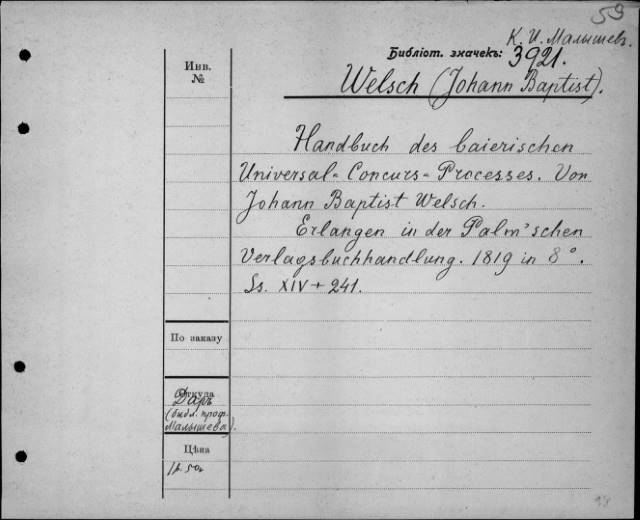 59
К. И. Малышевъ
Библіот. значекъ: 3921.
Инв.
№
Welsch (Johann Baptist).
Handbuch des baierischen
Universal-Concurs-Processes. Von
Johann Baptist Welsch.
Erlangen in der Palm'schen
Verlagsbuchhandlung. 1819 in 8°.
Ss. XIV + 241.
По заказу
Откуда
Даръ
(библ. проф.
Малышева).
Цѣна